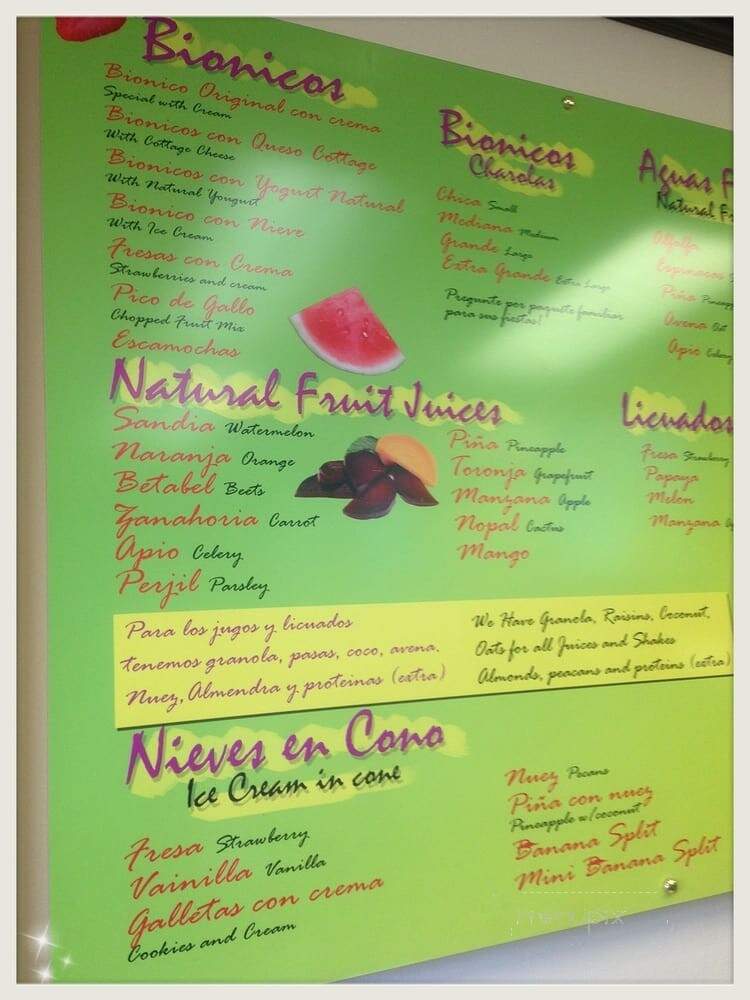 Bionicos
Bionico Original con crema
Special with Cream
Bionicos con Queso Cottage
With Cottage Cheese
Bionicos con Yogurt Natural
With Natural Yougurt
Bionico con Nieve
With Ice Cream
Fresas con Crema
Strawberries and cream
Pico de Gallo
Chopped Fruit Mix
Escamochas
Bionicos
Charolas
Chica Small
Mediana Medium
Grande Large
Extra Grande Extra Large
Pregunte por paquete familiar
para sus fiestas!
Aguas F
Natural Fr
Alfalfa
Espinacas
Piña Pineapp
Avena Oat
Apio Celery
Natural Fruit Juices
Sandia Watermelon
Naranja Orange
Betabel Beets
Zanahoria Carrot
Apio Celery
Perjil Parsley
Piña Pineapple
Toronja Grapefruit
Manzana Apple
Nopal Cactus
Mango
Licuados
Fresa Strawberry
Papaya
Melon
Manzana
Para los jugos y licuados
tenemos granola, pasas, coco, avena.
Nuez, Almendra y proteinas (extra)
We Have Granola, Raisins, Coconut,
Oats for all Juices and Shakes
Almonds, peacans and proteins (extra)
Nieves en Cono
Ice Cream in cone
Fresa Strawberry
Vainilla Vanilla
Galletas con crema
Cookies and Cream
Nuez Pecans
Piña con nuez
Pineapple w/coconut
Banana Split
Mini Banana Split
menupix